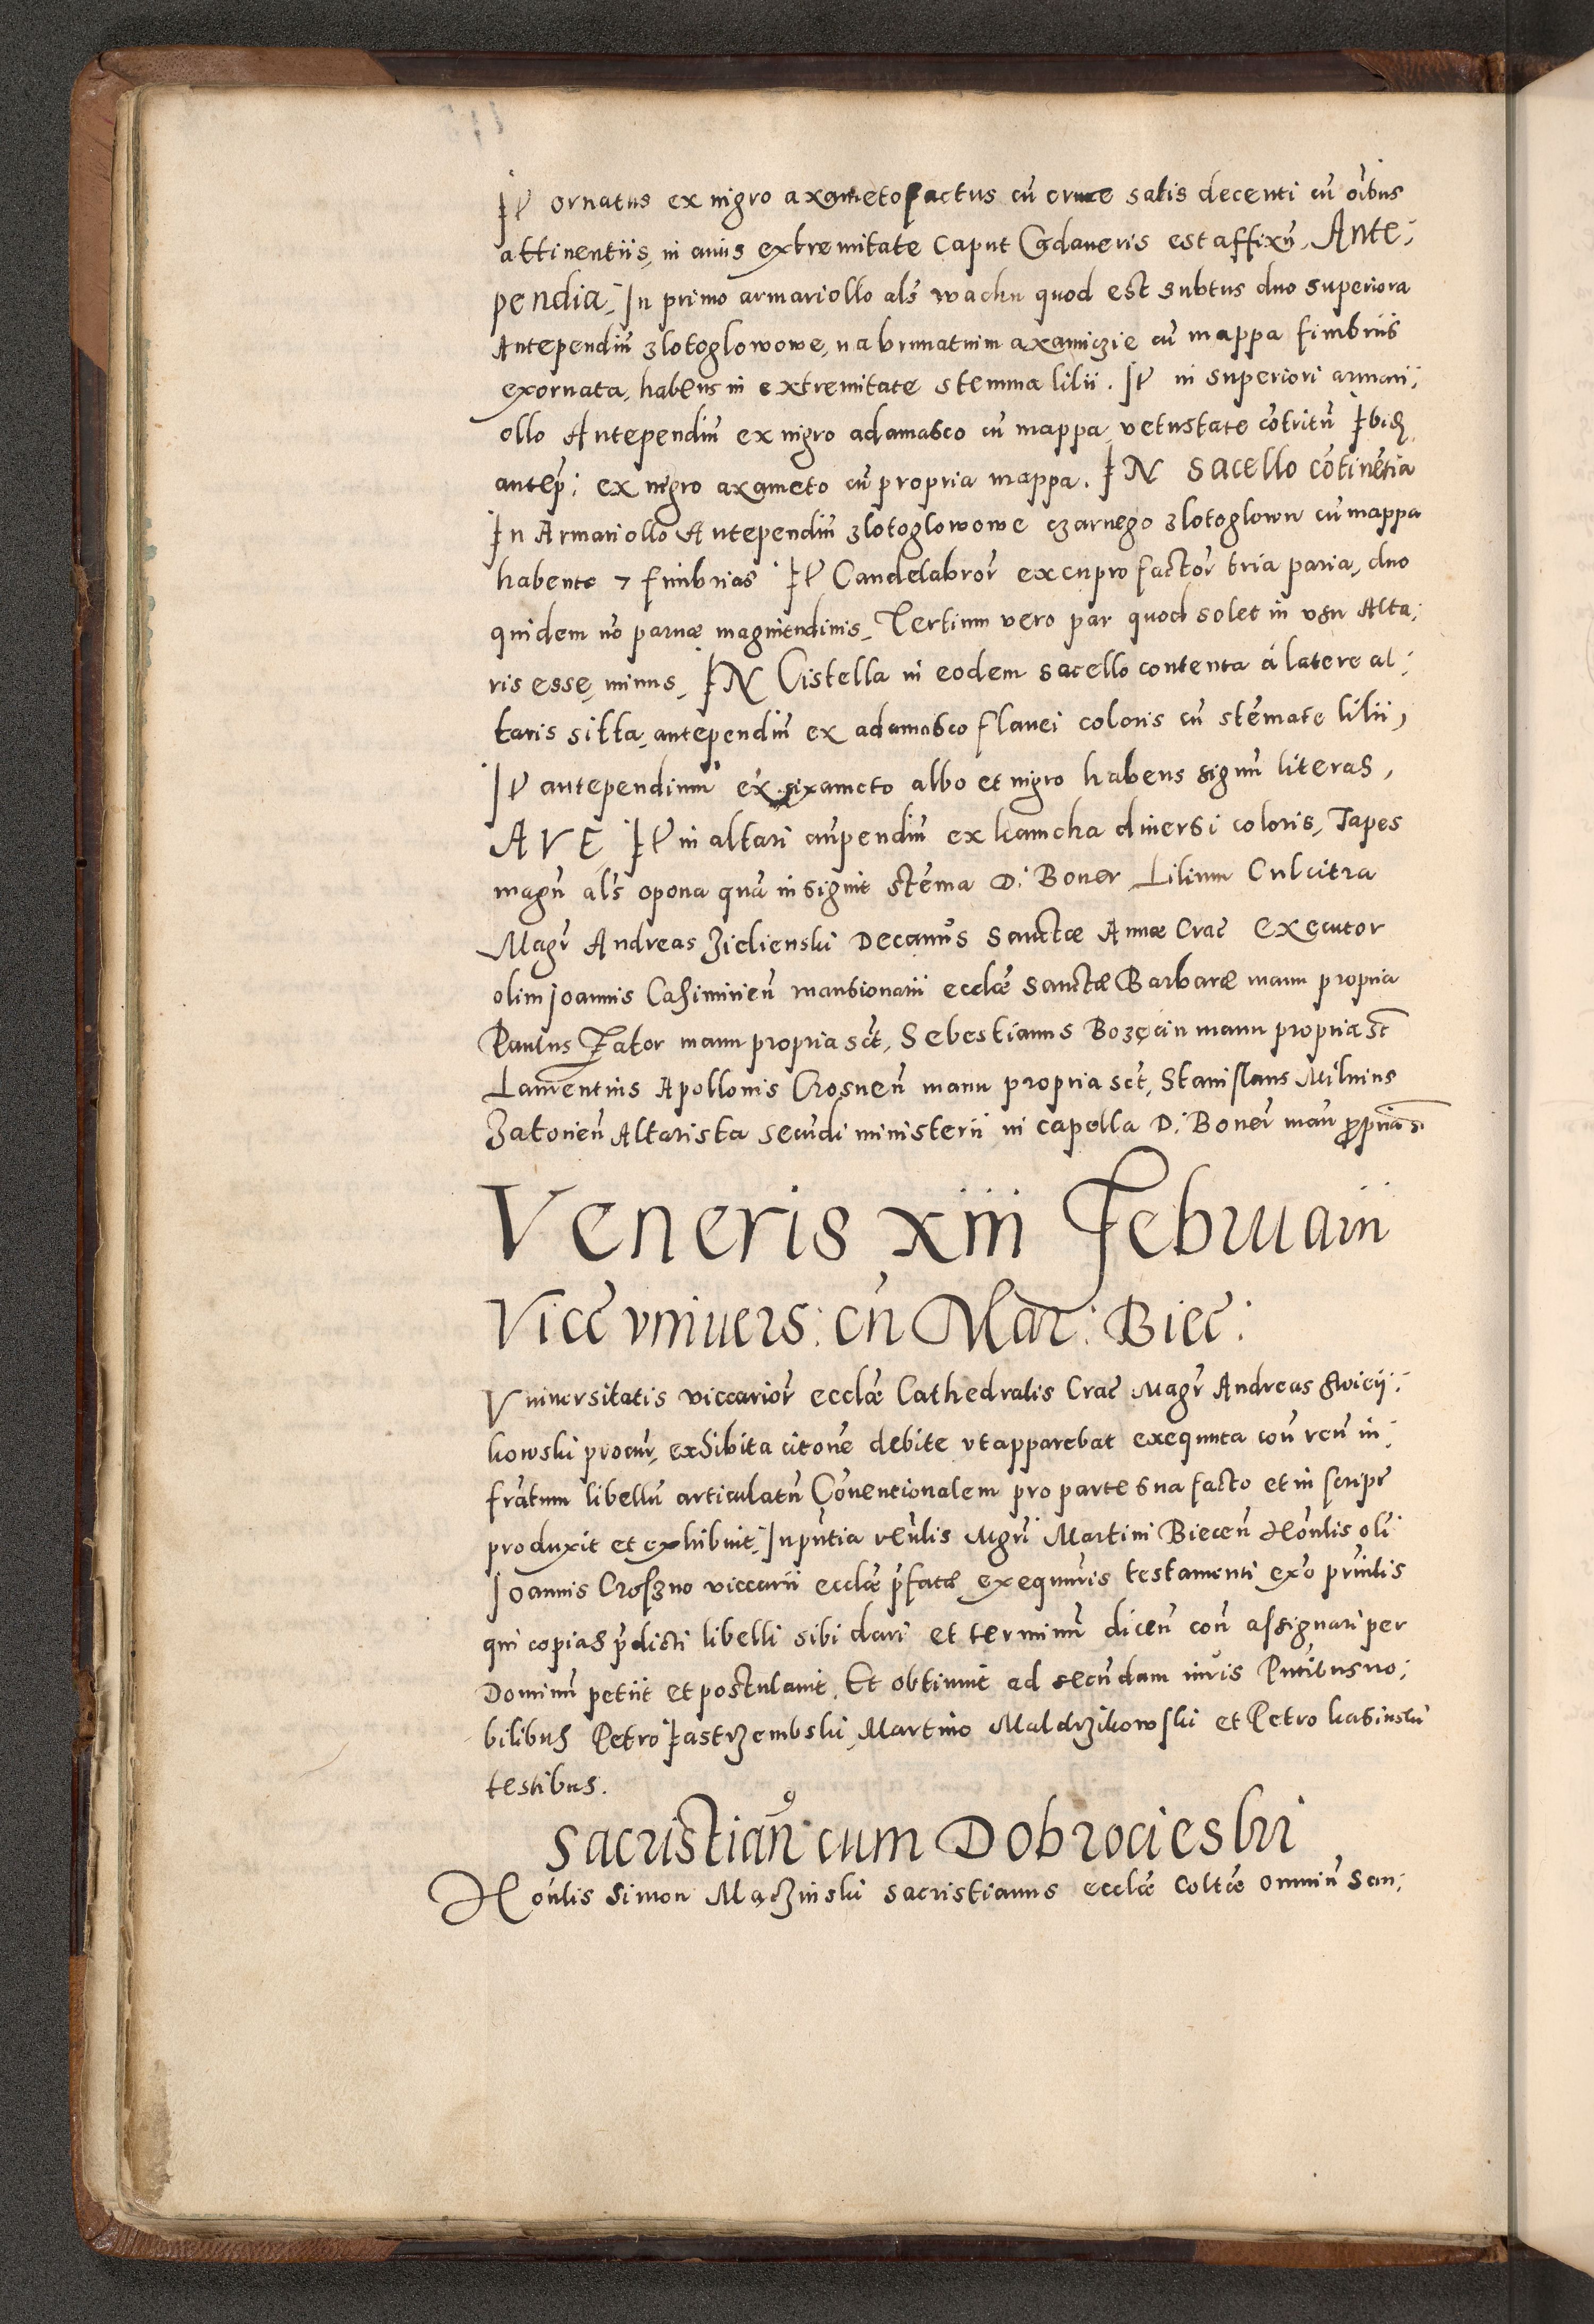 It ornatus ex nigro axameto factus cū cruce satis decenti cū oībus
attinentiis, in cuius extremitate caput Cadaueris est affixū. Ante:
pendia. In primo armariollo als wachu quod est subtus duo superiora
Antependiū zlotoglowowe, na brunatnim axamiczie cū mappa fimbriis
exornata, habens in extremitate stemma lilii. It in superiori armari:
ollo Antependiū ex nigro adamasco cū mappa vetustate cōtritū Ibid
antep: ex nigro axameto cū propria mappa. IN Sacello cōtinētia
In Armariollo Antependiū zlotoglowowe czarnego zlotoglowu cū mappa
habente & fimbrias It Candelabror ex cupro factor tria paria, duo
quidem nō paruæ magnitudinis, Tertium vero par quod solet in vsu Alta:
ris esse, minus, IN Cistella in eodem sacello contenta á latere al:
taris sitta, antependiū ex adamasco flauei coloris cū stēmate lilii,
It antependium ex axameto albo et nigro habens signū literas,
AVE It in altari anpendiū ex kamcha diuersi coloris, Tapes
magn̄ als opona quā insignit stēma D: Boner Lilium Culcitra
Magr Andreas Zielienski Decanus Sanctæ Annæ Crac̄ Executor
olim Joannis Casiminien̄ mansionarii ecclæ Sanctæ Barbaræ manu propria
Paulus Zator manu propria sc̄t, Sebestianus Bozęcin manu propria sc̄t
Laurentius Apollonis Crosnen̄ manu propria sc̄t, Stanislaus Miluius
Zatorien̄ Altarista secūdi ministerii in capella D: Boner manū propria s.
Veneris xiii Februarii
Vicc̄ vniuers: cū Mar: Biec̄:
Vniuersitatis viccarior ecclæ Cathedralis Crac̄ Magr Andreas Swicij:
kowski procur, exhibita citōne debite vt apparebat exequuta con̄ reū in:
frātum libellū articulatū Cōuentionalem pro parte sua facto et in script
produxit et exhibuit, In pūtia vēnlis Mgri Martini Biecen̄ Hōnlis oli
Joannis Croszno viccarii ecclæ pfatæ exequuris testamenti exo priūlis
qui copias pdicti libelli sibi dari et terminū dicen̄ con̄ assignari per
Dominū petiit et postulauit, Et obtinuit ad secūdam iuris Pntibus no:
bilibus Petro Jastrzembski, Martino Maldrzikowski et Petro kasinski
testibus.
Sacristian̄9 cum Dobrocieski
Hōnlis Simon Mączinski sacristianus ecclæ coltæ omniū san: